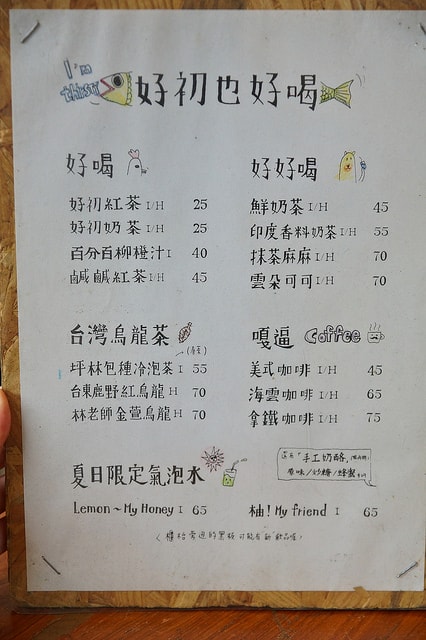 I'm
thirsty
好初也好喝
好喝
好初紅茶 I/H 25
好初奶茶 I/H 25
百分百柳橙汁 I 40
鹹鹹紅茶 I/H 45
好好喝
鮮奶茶 I/H 45
印度香料奶茶 I/H 55
抹茶麻麻 I/H 70
雲朵可可 I/H 70
台灣烏龍茶
坪林包種冷泡茶 I 55
台東鹿野紅烏龍 H 70
林老師金萱烏龍 H 70
嘎逼 Coffee
美式咖啡 I/H 45
海雲咖啡 I/H 65
拿鐵咖啡 I/H 75
夏日限定氣泡水
Lemon~My Honey I 65
還有「手工奶酪」
原味/炒糖/蜂蜜
柚! My friend I 65
〈櫃枱旁邊的黑板可能有新飲品喔〉